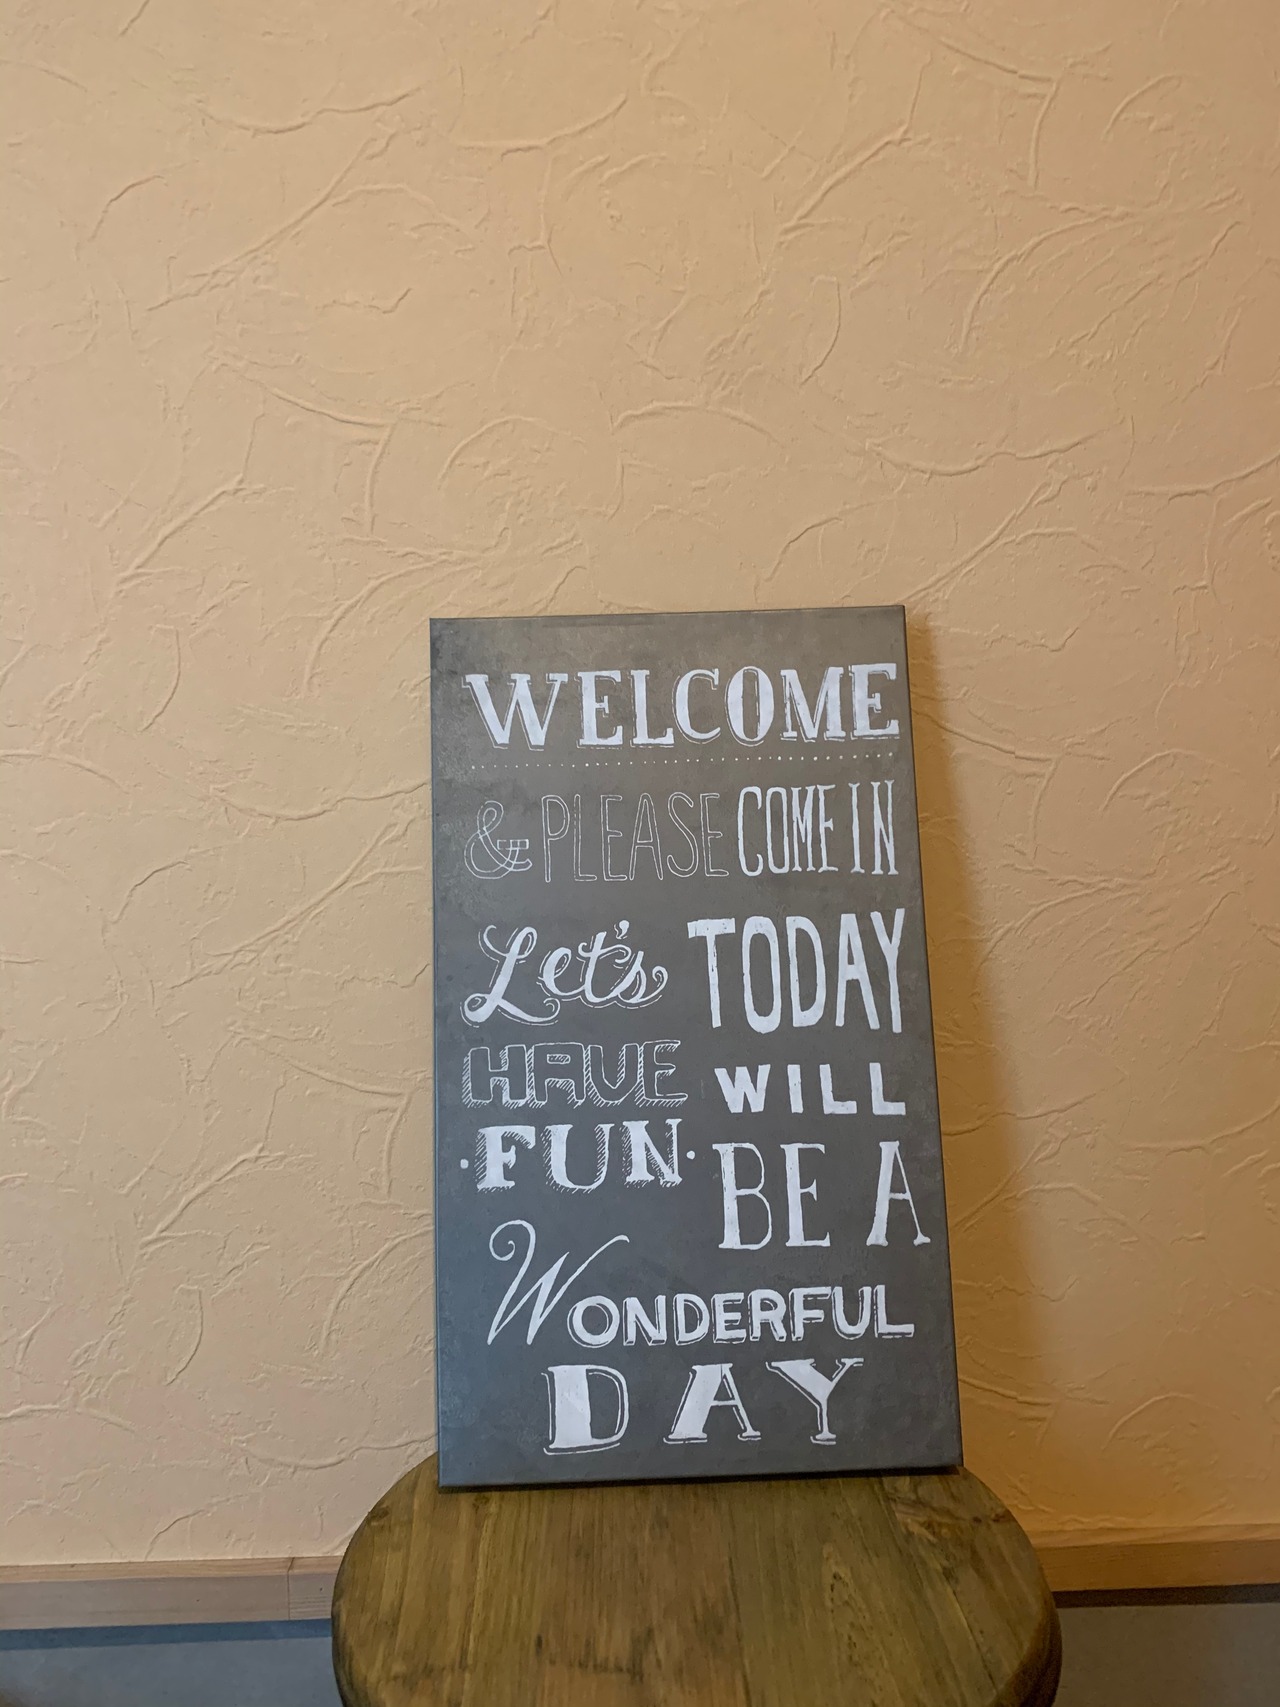 WELCOME
& PLEASE COME IN
Let's
HAVE
·FUN·
TODAY
WILL
BE A
WONDERFUL
DAY